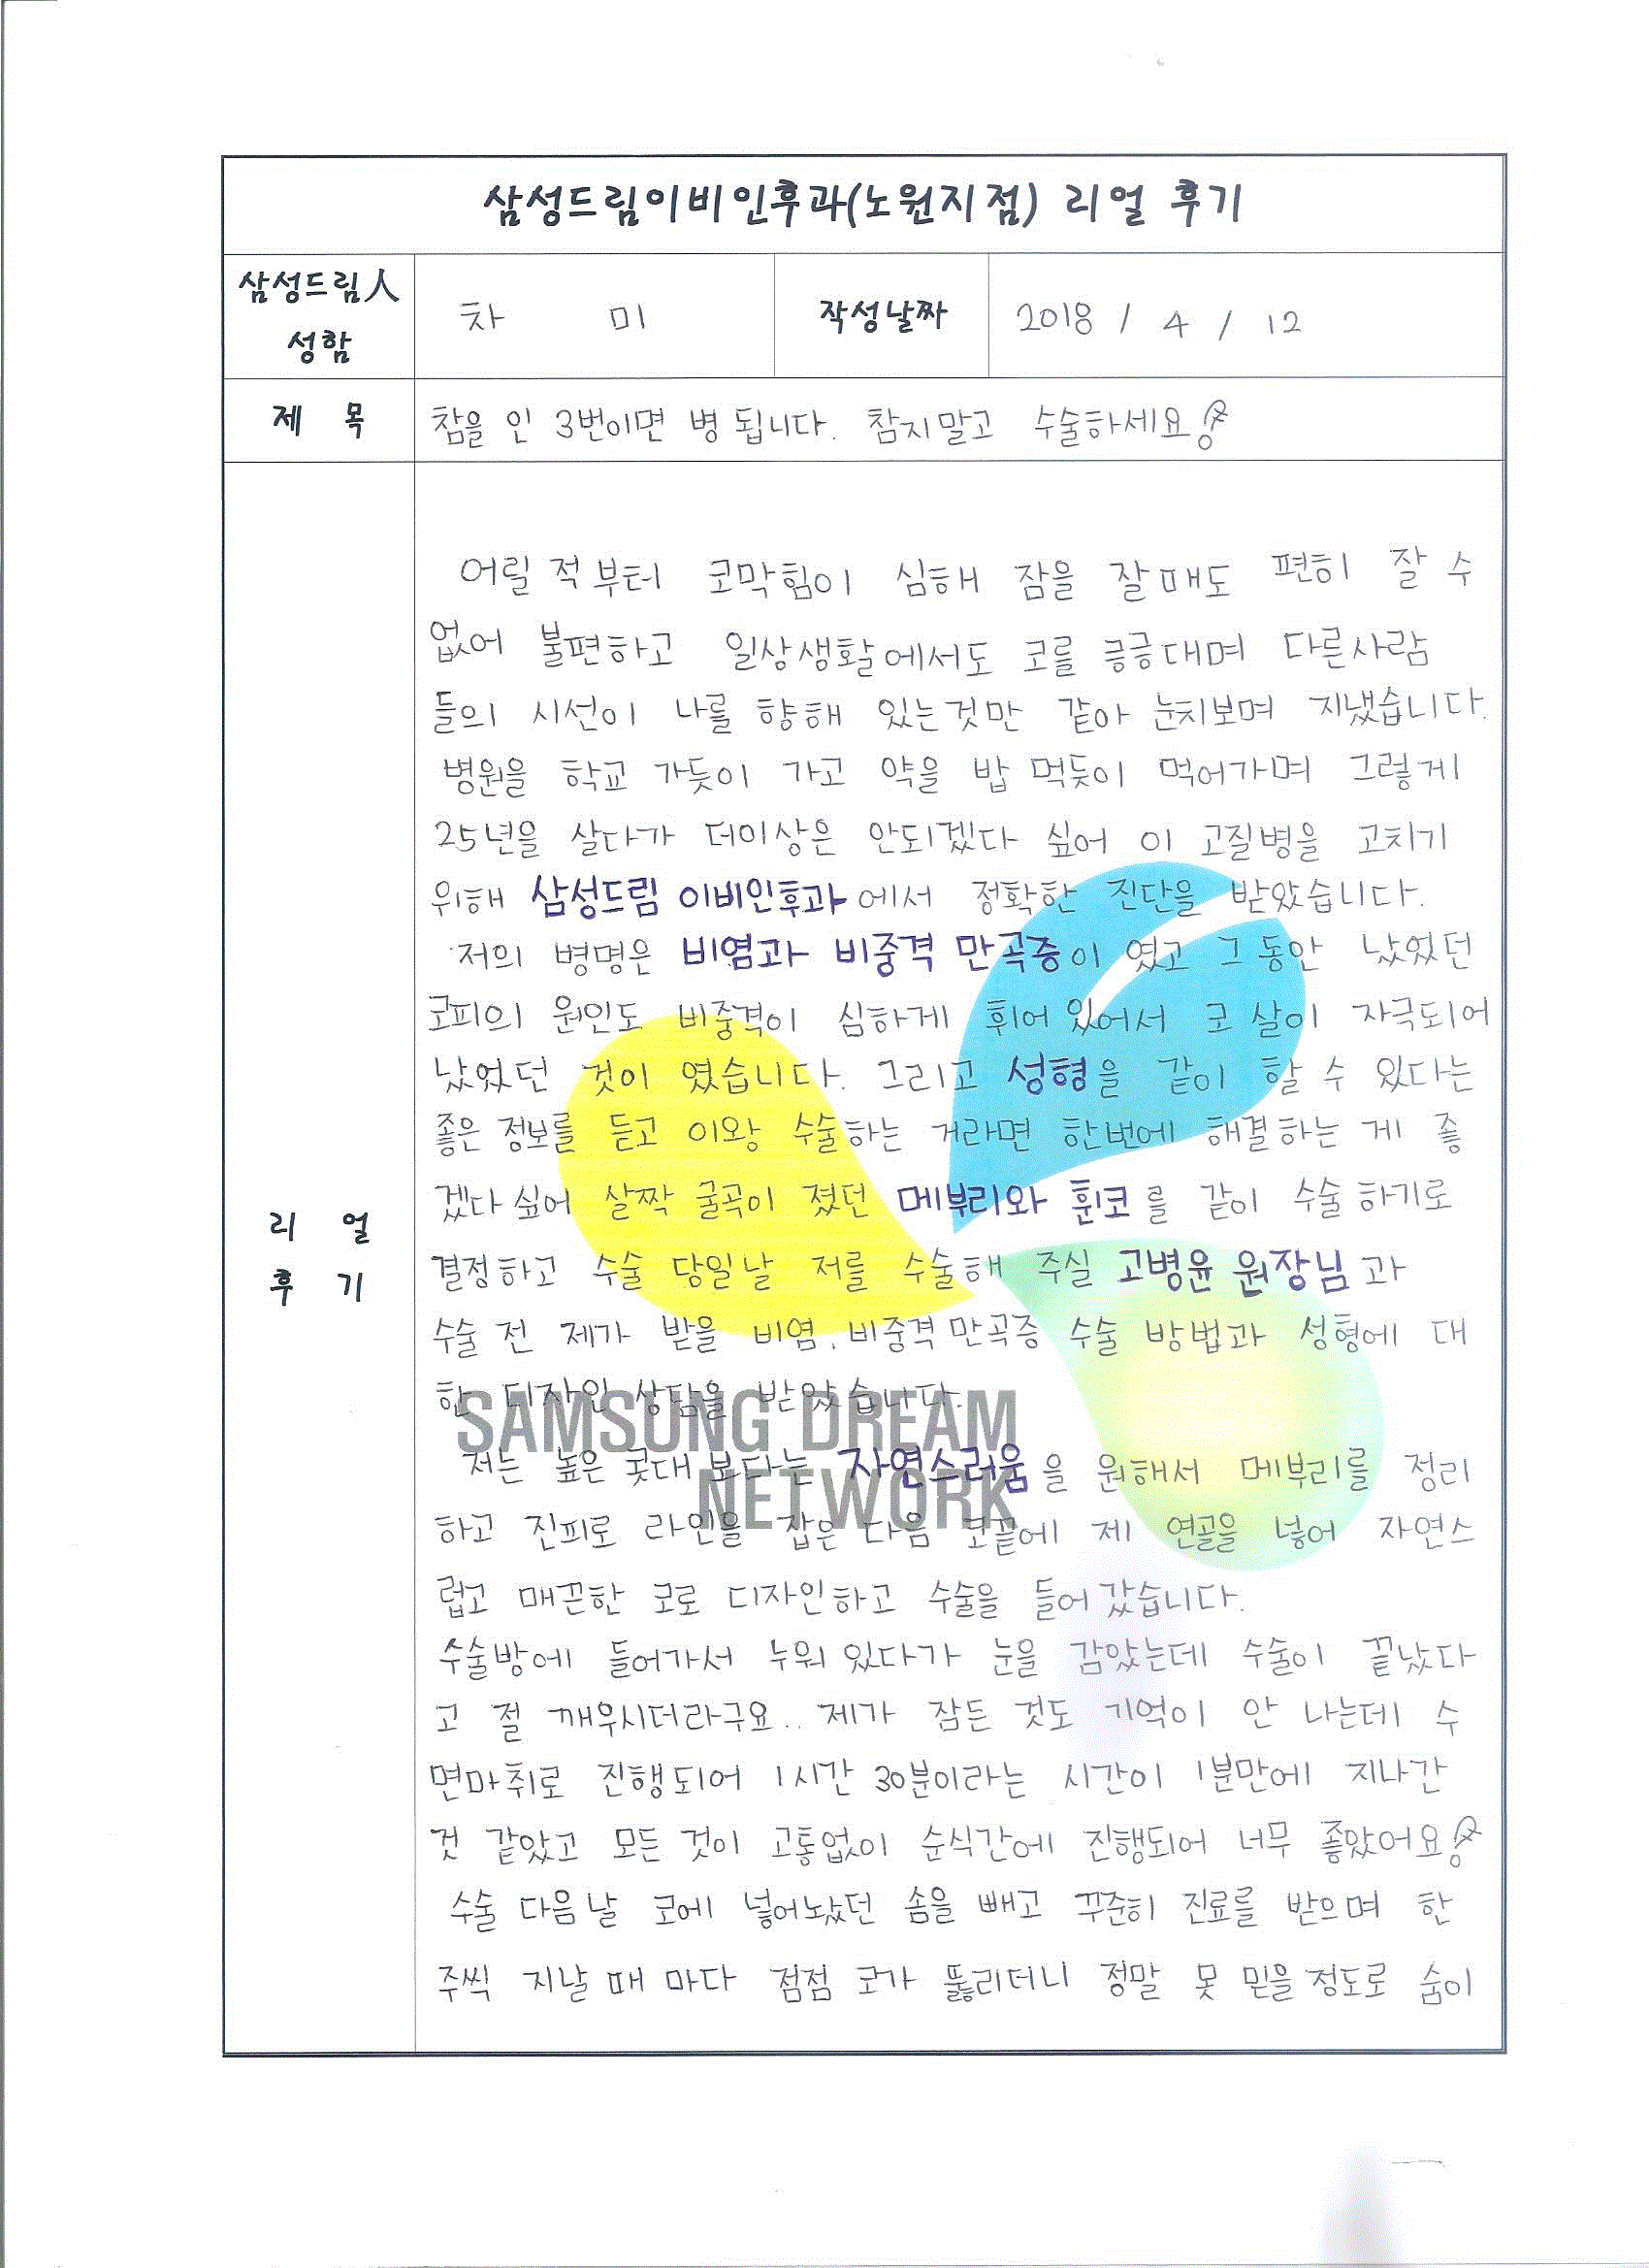 삼성드림이비인후과(노원지점) 리얼 후기
삼성드림人 성함
차 미
작성날짜
2018 / 4 / 12
제 목
참을 인 3번이면 병 됩니다. 참지말고 수술하세요!
리 얼
후 기
어릴 적부터 코막힘이 심해 잠을 잘때도 편히 잘 수
없어 불편하고 일상생활에서도 코를 킁킁대며 다른사람
들의 시선이 나를 향해 있는것만 같아 눈치보며 지냈습니다.
병원을 학교 가듯이 가고 약을 밥 먹듯이 먹어가며 그렇게
25년을 살다가 더이상은 안되겠다 싶어 이 고질병을 고치기
위해 삼성드림 이비인후과에서 정확한 진단을 받았습니다.
저의 병명은 비염과 비중격 만곡증이 였고 그 동안 났었던
코피의 원인도 비중격이 심하게 휘어 있어서 코 살이 자극되어
났었던 것이 였습니다. 그리고 성형을 같이 할 수 있다는
좋은 정보를 듣고 이왕 수술하는 거라면 한번에 해결하는 게 좋
겠다 싶어 살짝 굴곡이 졌던 메부리와 휜코를 같이 수술 하기로
결정하고 수술 당일날 저를 수술해 주실 고병윤 원장님과
수술 전 제가 받을 비염. 비중격 만곡증 수술 방법과 성형에 대
한 디자인 상담을 받았습니다.
저는 높은 콧대 보다는 자연스러움을 원해서 메부리를 정리
하고 진피로 라인을 잡은 다음 코끝에 제 연골을 넣어 자연스
럽고 매끈한 코로 디자인하고 수술을 들어갔습니다.
수술방에 들어가서 누워 있다가 눈을 감았는데 수술이 끝났다
고 절 깨우시더라구요.. 제가 잠든 것도 기억이 안 나는데 수
면마취로 진행되어 1시간 30분이라는 시간이 1분만에 지나간
것 같았고 모든 것이 고통없이 순식간에 진행되어 너무 좋았어요!
수술 다음날 코에 넣어놨던 솜을 빼고 꾸준히 진료를 받으며 한
주씩 지날 때 마다 점점 코가 뚫리더니 정말 못 믿을 정도로 숨이
SAMSUNG DREAM
NETWORK